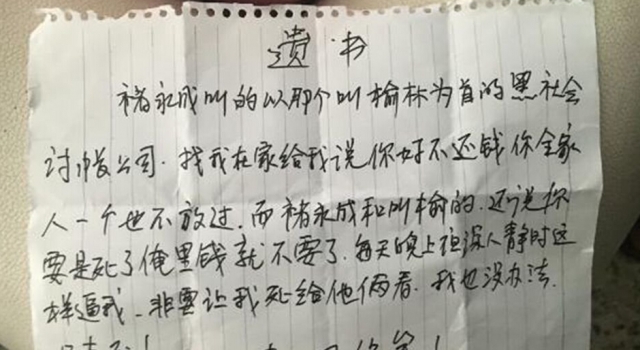 遗书
褚永成叫的以那个叫榆林为首的黑社会
讨账公司.找我在家给我说你好不还钱你全家
人一个也不放过.而褚永成和叫榆的.还说你
要是死了俺里钱就不要了.每天晚上夜深人静时这
样逼我.非要让我死给他俩看.我也没办法.